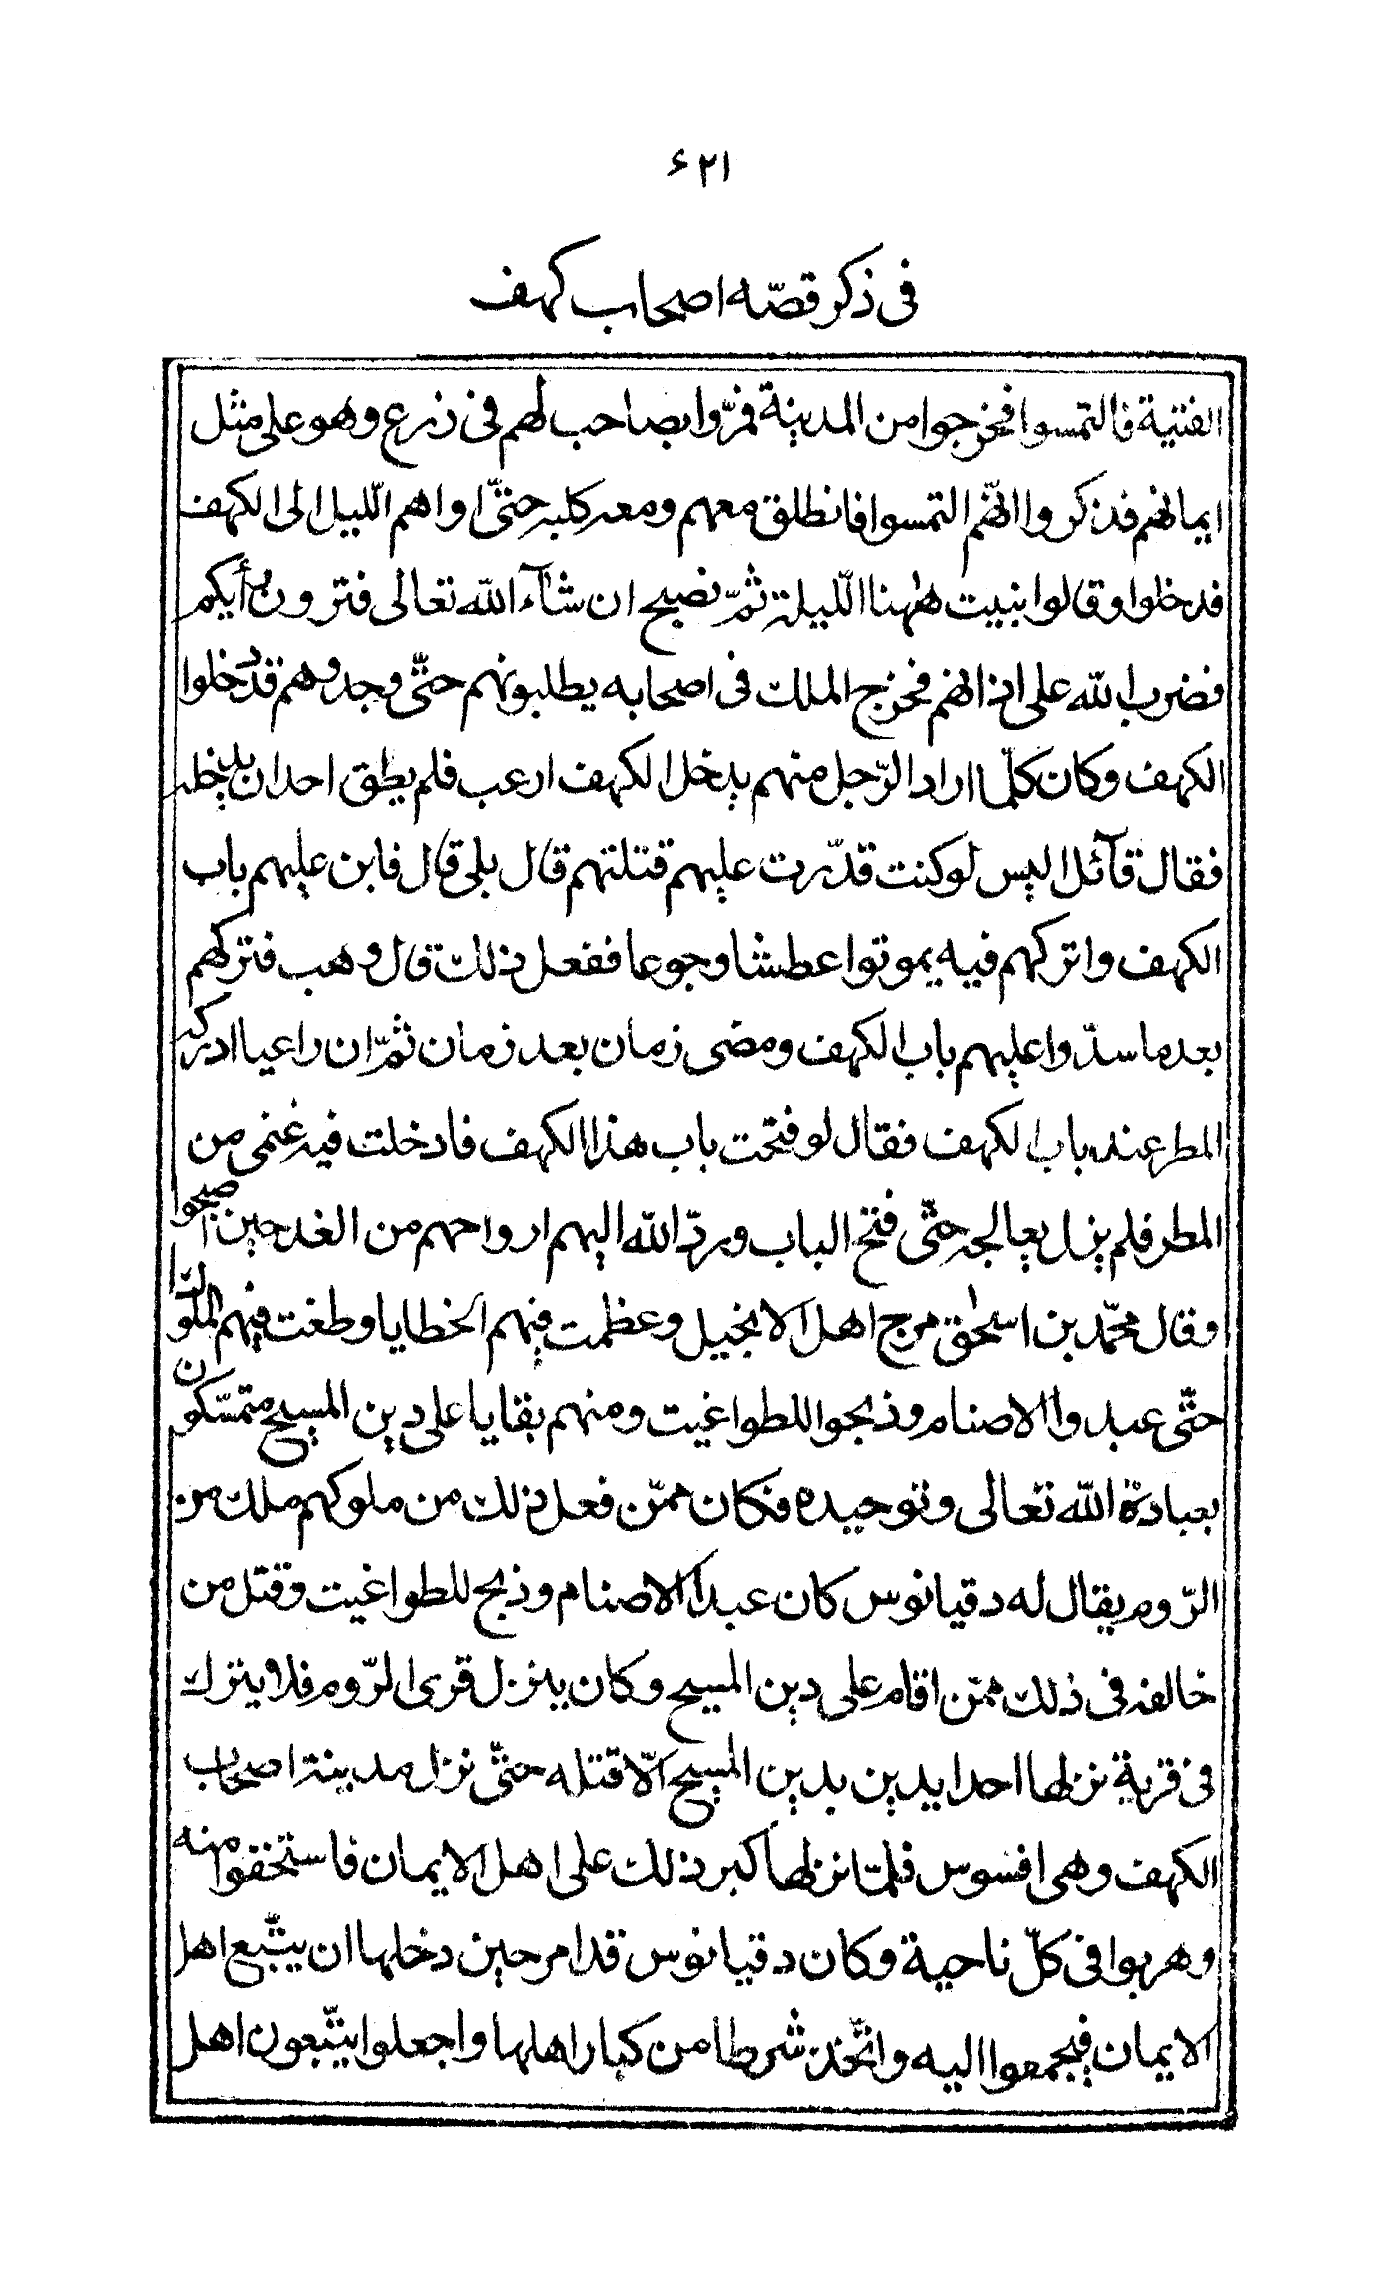 ۶۲۱
فی ذکر قصّه اصحاب کهف
الفتية فالتمسوا فخرجوا من المدينة فمرّوا بصاحب لهم فی زرع و هو على مثل
ايمانهم فذكروا انّهم التمسوا فانطلق معهم و معه كلبه حتّى اواهم اللّيل الى الكهف
فدخلوا و قالوا نبيت ههنا اللّيلة ثمّ نصبح ان شآء اللّه تعالى فترون رأيكم
فضرب اللّه على اذانهم فخرج الملك فی اصحابه يطلبونهم حتّى وجدوهم قد دخلوا
الكهف و كان كلّما اراد الرّجل منهم يدخل الكهف ارعب فلم يطق احد ان يدخله
فقال قآئل اليس لو كنت قدّرت عليهم قتلتهم قال بلى قال فابن عليهم باب
الكهف و اتركهم فيه يموتوا عطشا و جوعا ففعل ذلك قال وهب فتركهم
بعد ما سدّوا عليهم باب الكهف و مضى زمان بعد زمان ثمّ ان راعيا ادركه
المطر عند باب الكهف فقال لو فتحت باب هذا الكهف فادخلت فيه غنمى من
المطر فلم يزل يعالجه حتّى فتح الباب و ردّ اللّه اليهم ارواحهم من الغد حين اصبحوا
و قال محمّد بن اسحٰق مرج اهل الانجيل و عظمت فيهم الخطايا و طغت فيهم الملوك
حتّى عبدوا الاصنام و ذبحوا للطواغيت و منهم بقايا على دين المسيح متمسّكون
بعبادة اللّه تعالى و توحيده فكان ممّن فعل ذلك من ملوكهم ملك من
الرّوم يقال له دقيانوس كان عبد الاصنام و ذبح للطواغيت و قتل من
خالفه فی ذلك ممّن اقام على دين المسيح و كان ينزل قرى الرّوم فلا يترك
فی قرية نزلها احدا يدين بدين المسيح الّا قتله حتّى نزل مدينة اصحاب
الكهف و هى افسوس فلمّا نزلها كبر ذلك على اهل الايمان فاستخفوا منه
و هربوا فی كلّ ناحية و كان دقيانوس قد امر حين دخلها ان يتّبع اهل
الايمان فيجمعوا اليه و اتّخذ شرطا من كبار اهلها و اجعلوا يتّبعون اهل